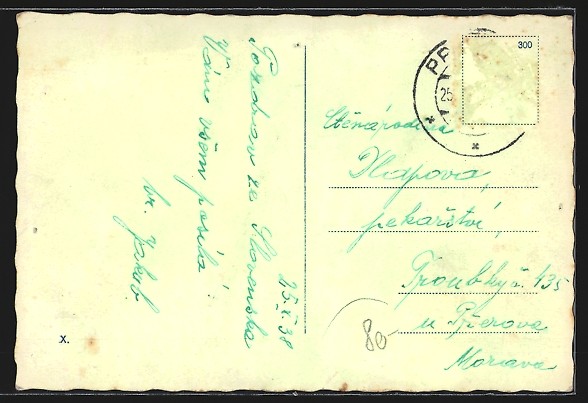 25.X.38
Pozdrav ze Slovenska
Vám všem posílá
br. Jakub.
x.
300
PR
25
Ctěná rodina
Hlapova,
pekařství,
Troubky č. 435
u Přerova
Morava
80-